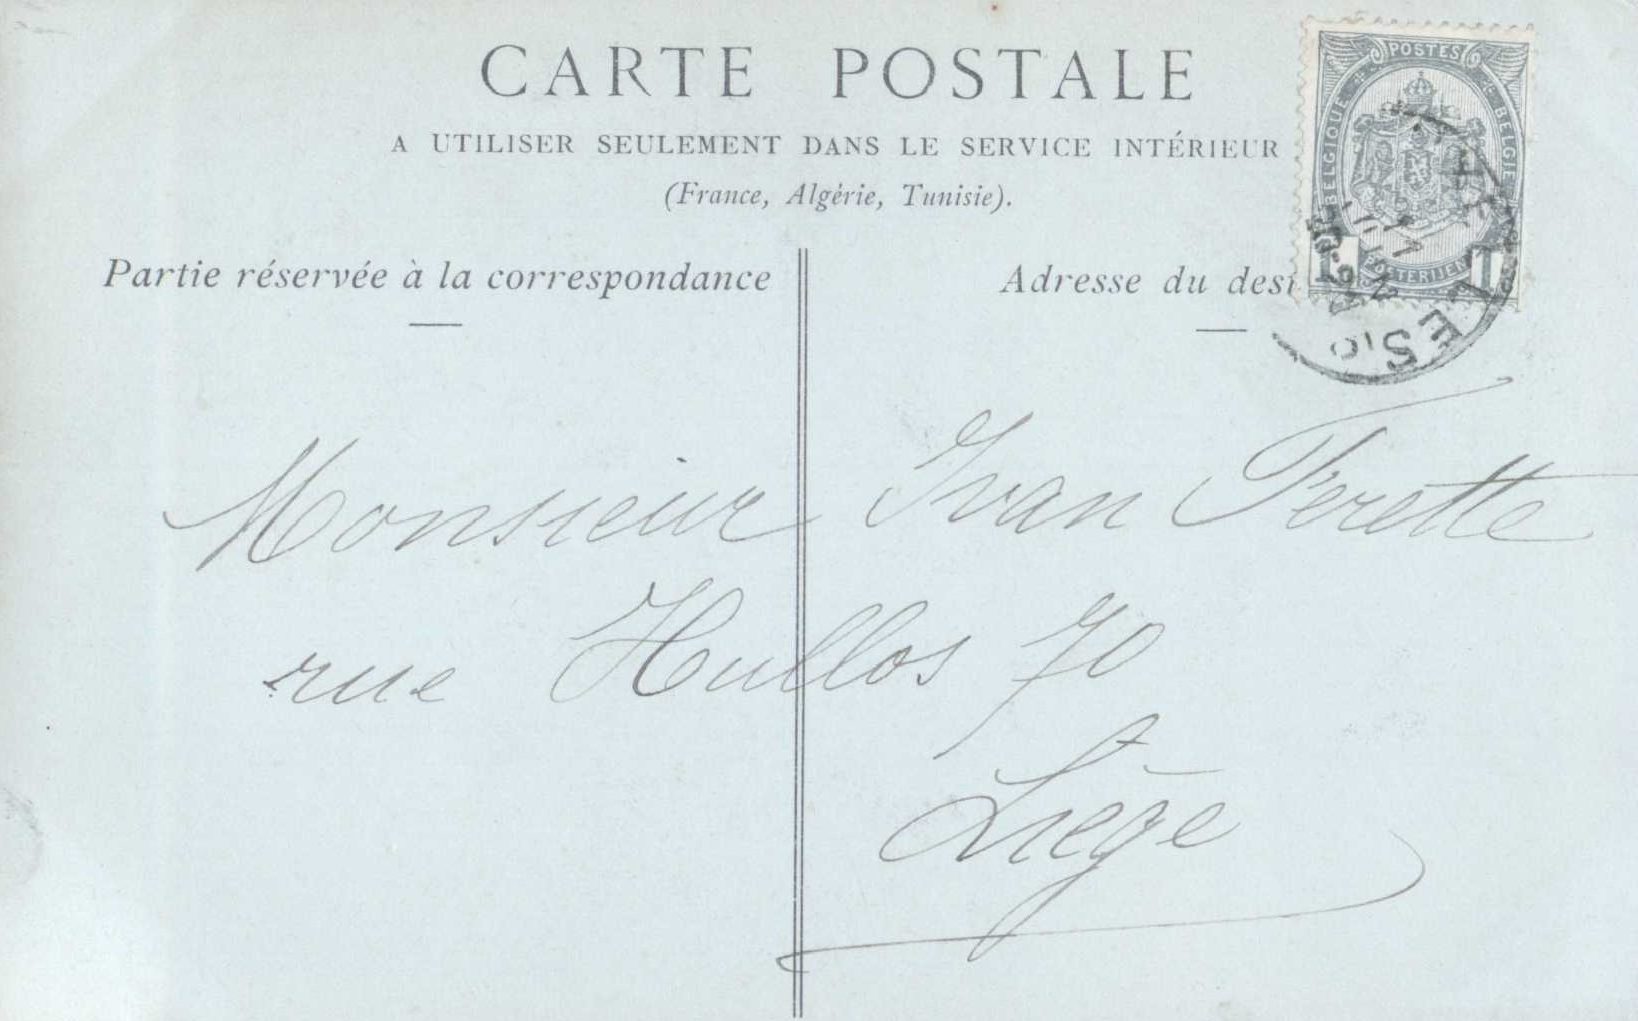 CARTE POSTALE
A UTILISER SEULEMENT DANS LE SERVICE INTÉRIEUR
(France, Algérie, Tunisie).
POSTES
BELGIQUE
BELGIË
POSTERIJEN
1
1
Partie réservée à la correspondance
Adresse du desti
Monsieur Ivan Ferette
rue Hullos 70
Liège